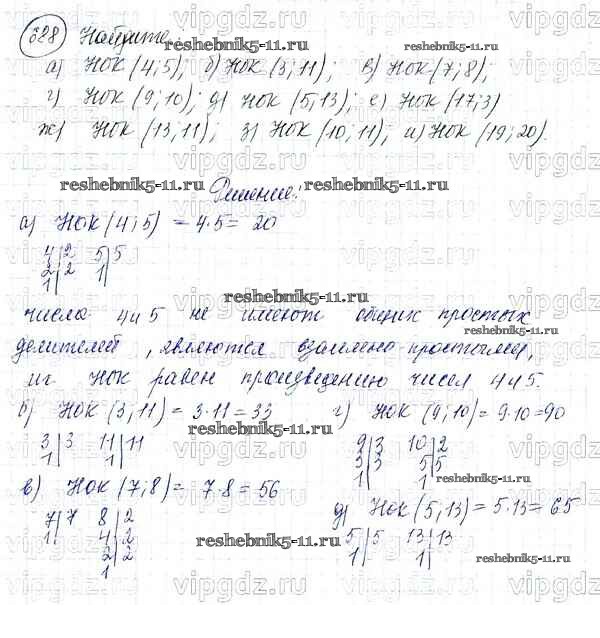 688 Найдите
reshebnik5-11.ru
reshebnik5-11.ru
а) НОК (4; 5); б) НОК (3; 11); в) НОК (7; 8);
г) НОК (9; 10); д) НОК (5; 13); е) НОК (17; 3)
ж) НОК (13; 11); з) НОК (10; 11); и) НОК (19; 20).
reshebnik5-11.ru
reshebnik5-11.ru
Решение:
а) НОК (4; 5) = 4·5 = 20
4|2 5|5
2|2 1|
1|
числа 4 и 5 не имеют общих простых
reshebnik5-11.ru
делителей, являются взаимно-простыми,
их НОК равен произведению чисел 4 и 5.
б) НОК (3; 11) = 3·11 = 33 г) НОК (9; 10) = 9·10 = 90
reshebnik5-11.ru
3|3 11|11 9|3 10|2
1| 1| 3|3 5|5
1| 1|
reshebnik5-11.ru
в) НОК (7; 8) = 7·8 = 56 д) НОК (5; 13) = 5·13 = 65
7|7 8|2 5|5 13|13
1| 4|2 1| 1|
2|2
1|
reshebnik5-11.ru
reshebnik5-11.ru
vipgdz.ru